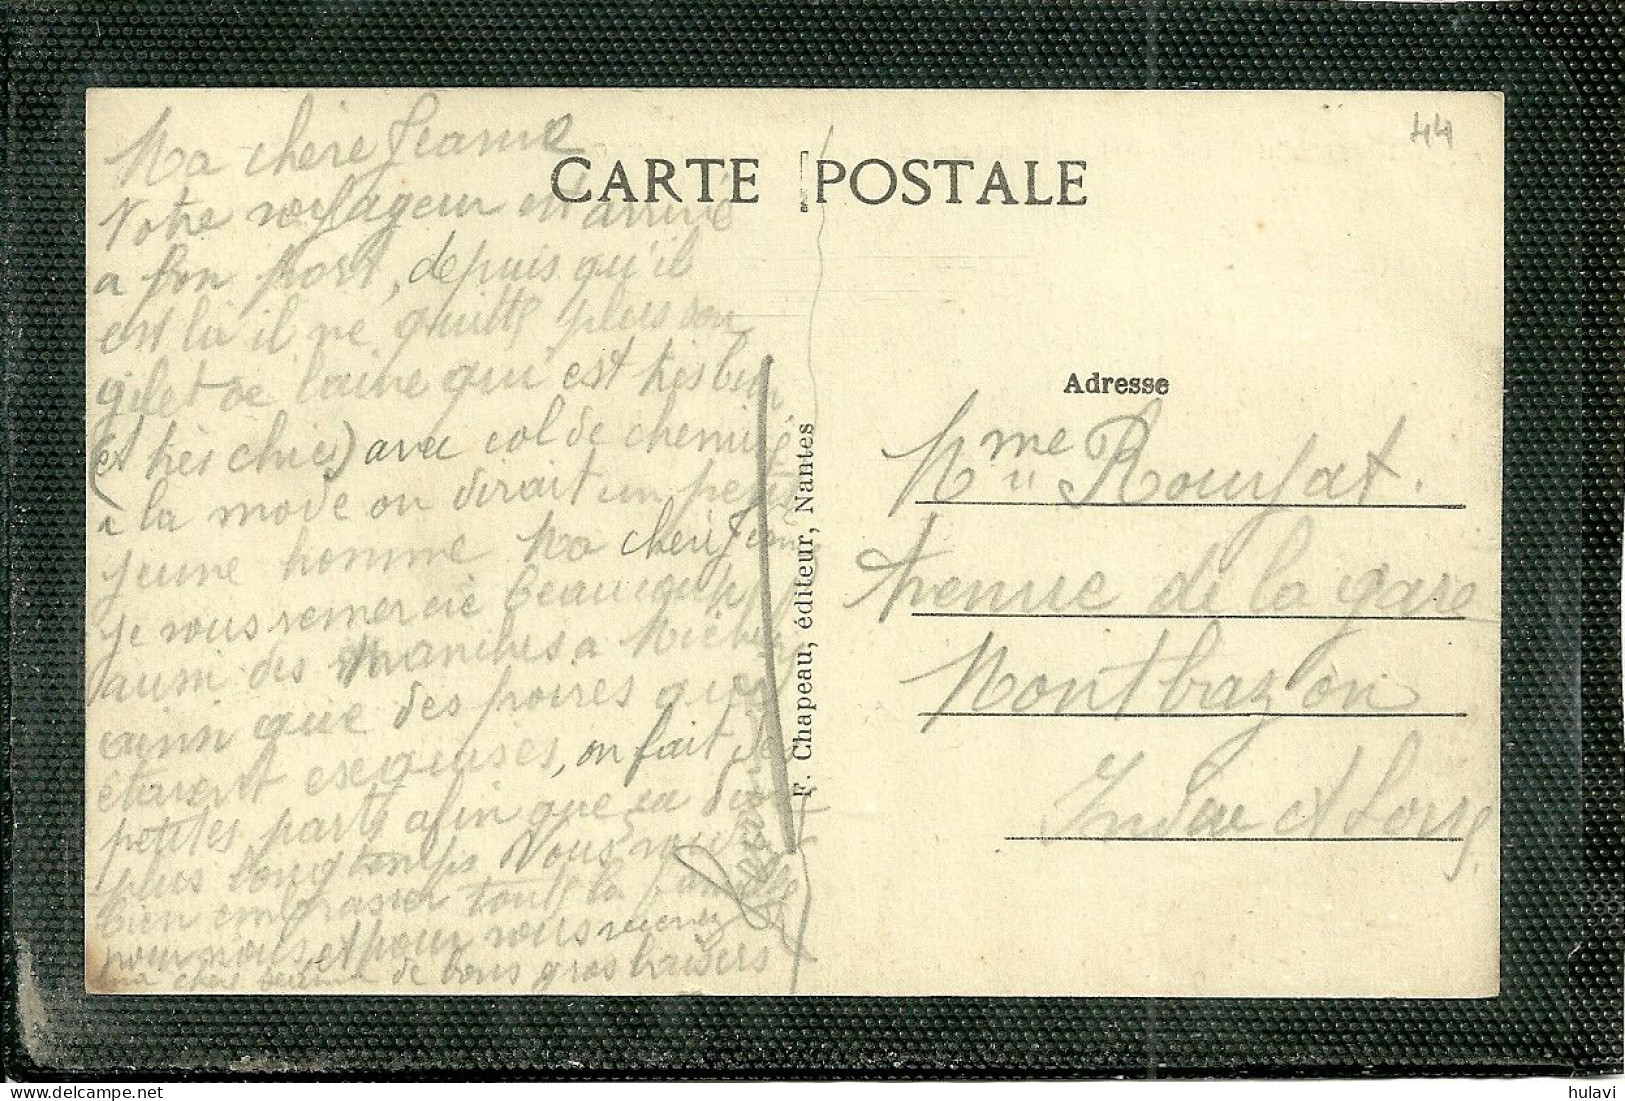 Ma chère Jeanne
Votre voyageur est arrivé
a bon port, depuis qu'il
est là il ne quitte plus son
gilet de laine qui est très bien
(et très chic) avec col de chemise
a la mode on dirait un petit
jeune homme Ma chère Jeanne
je vous remercie beaucoup
aussi des manches a
ainsi que des poires qui
étaient exsquises, on fait de
petites parts afin que ça dure
plus longtemps Vous
bien embrasser toute la famille
pour nous et pour vous recevez
ma chère Jeanne de bons gros baisers
CARTE POSTALE
44
F. Chapeau, éditeur, Nantes
Adresse
Mme Roujat.
Avenue de la gare
Montbazon
Indre et Loire
hulavi